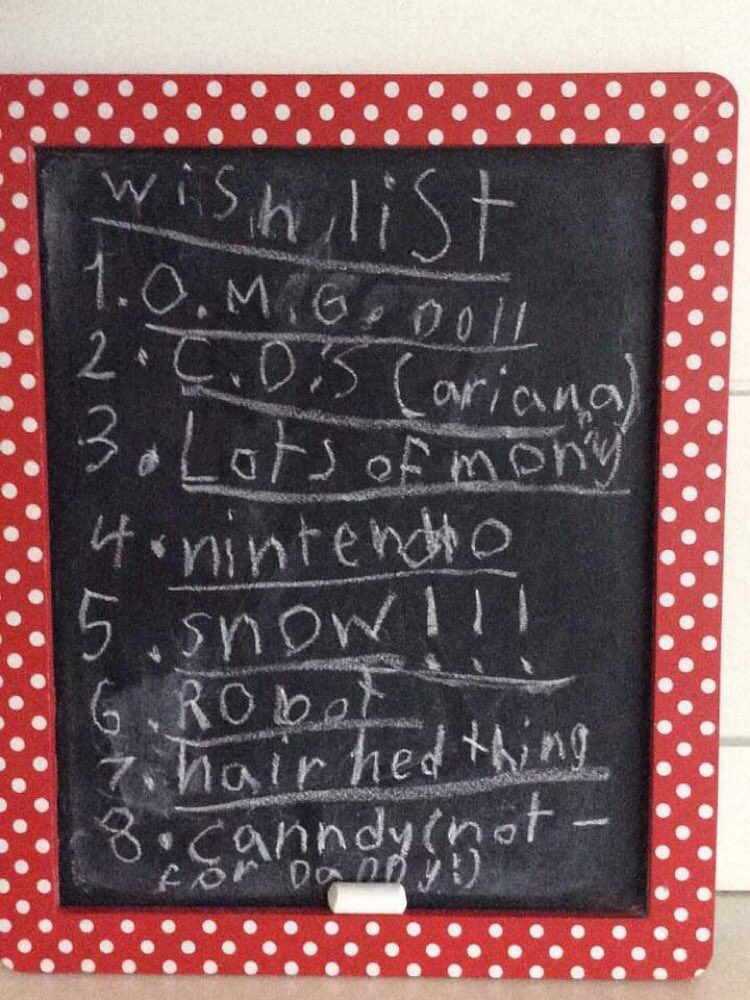 wish list
1. O.M.G. Doll
2. C.D.S (ariana)
3. Lots of mony
4. nintendo
5. snow!!!
6. RObot
7. hair hed thing
8. canndy (not -
for DaDDy!)